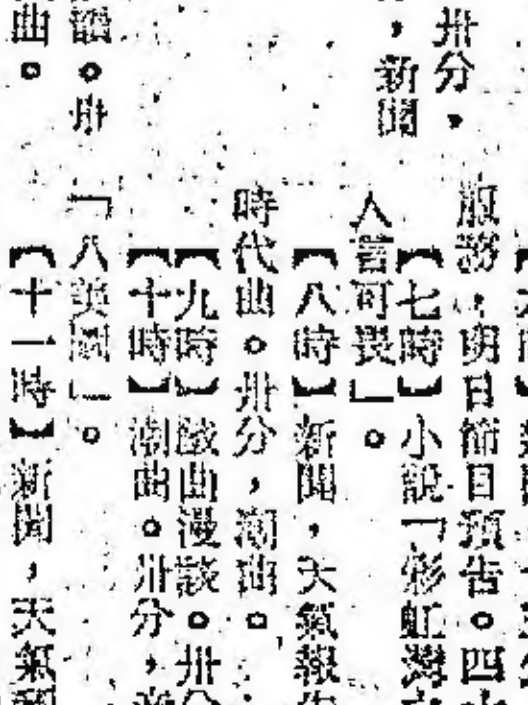 卅分，
，新聞
曲。
。卅
服務，明日節目預告。四十
【七時】小説「彩虹灣
人言可畏」。
【八時】新聞，天氣報
時代曲。卅分，潮曲。
【九時】戲曲漫談。卅分
【十時】潮曲。卅分，
「八美圖」。
【十一時】新聞，天氣